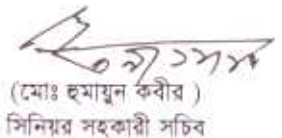 (মোঃ হুমায়ুন কবীর )
সিনিয়র সহকারী সচিব